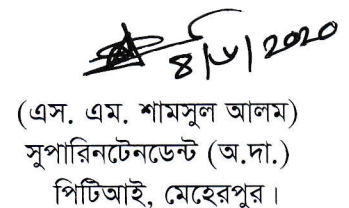 (এস. এম. শামসুল আলম)
সুপারিনটেনডেন্ট (অ.দা.)
পিটিআই, মেহেরপুর।